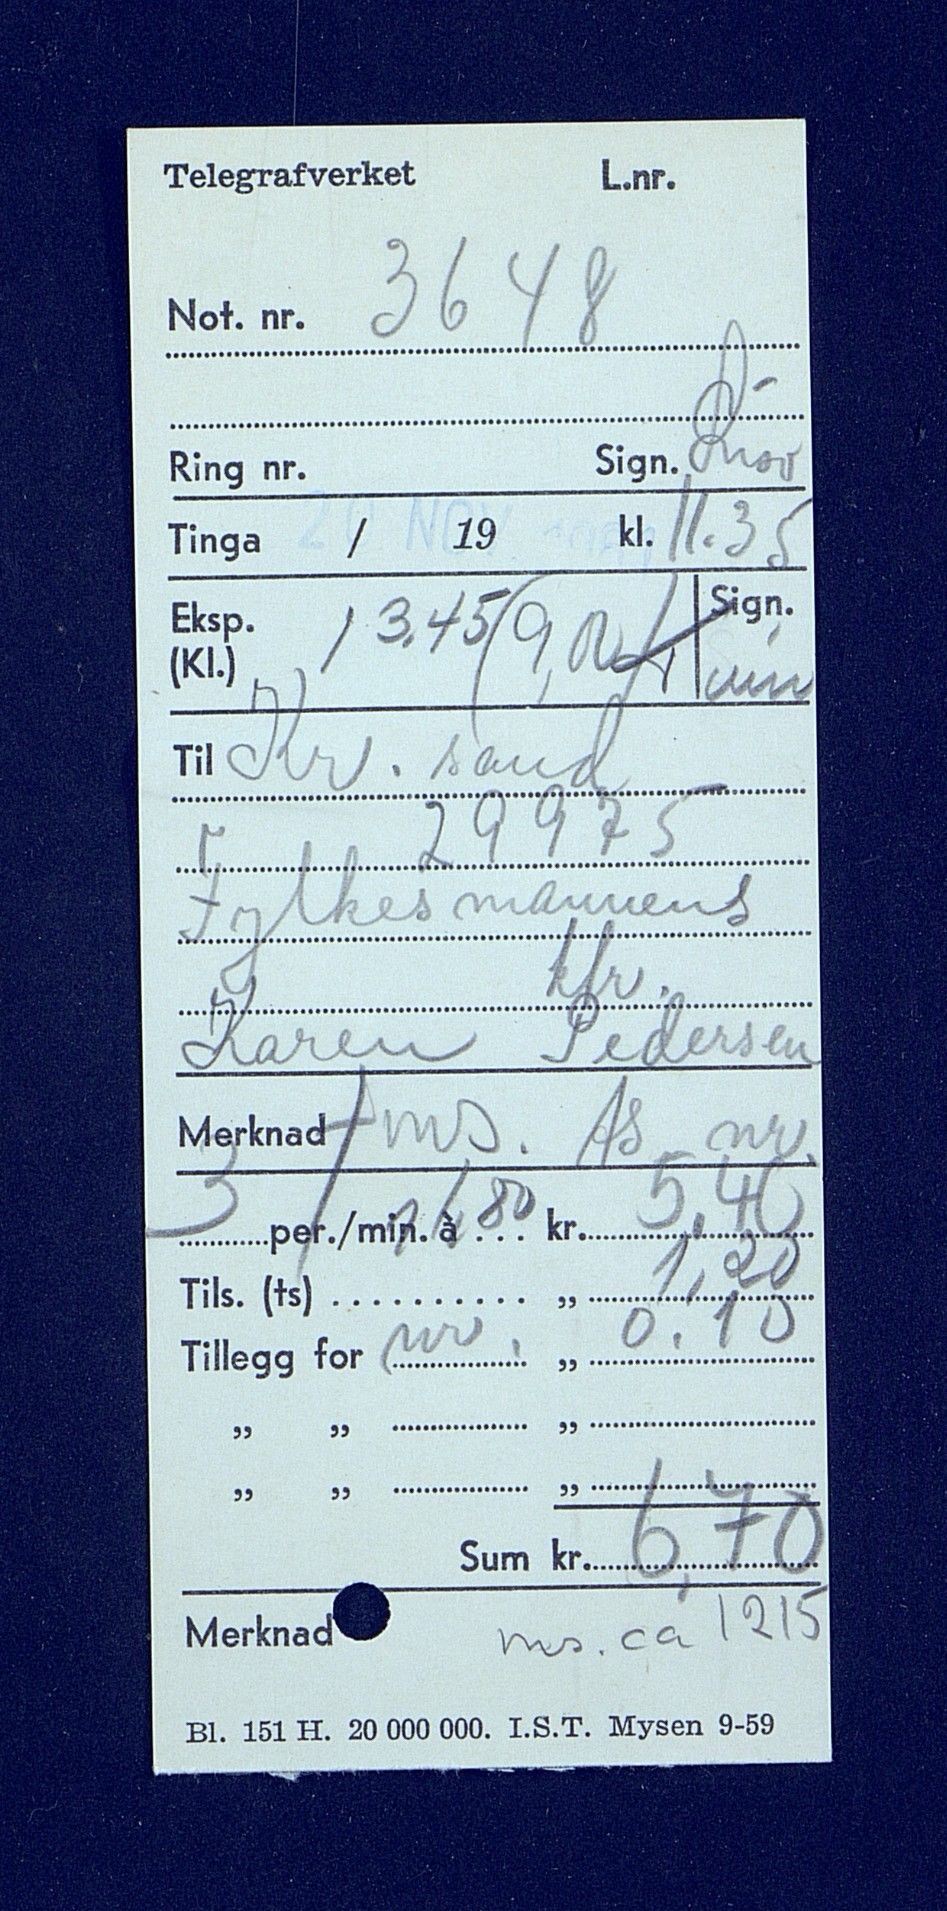 Telegrafverket L.nr.
Not. nr. 3648
Ring nr. Sign.
Tinga 20 NOV / 19 kl. 11.35
Eksp. (Kl.) 13.45 Sign.
Til Kr. sand
29975
Fylkesmannens
kfr.
Karen Pedersen
Merknad ms. As nr.
3 per./min. à 1,80 kr. 5,40
Tils. (ts) .......... „ 1,20
Tillegg for nr. „ 0.10
„ „ „
„ „ „
Sum kr. 6,70
Merknad ms. ca 1215
Bl. 151 H. 20 000 000. I.S.T. Mysen 9-59